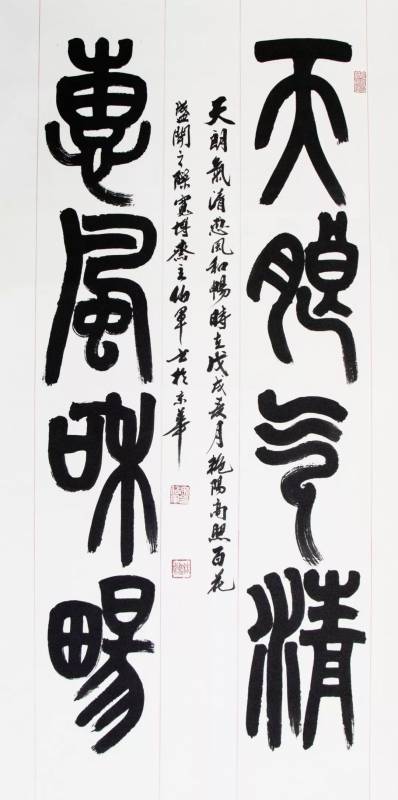 天朗气清
惠風和暢
天朗氣清惠風和暢時在戊戌夏月艳陽高照百花
盛開之際寬博齋主伯軍书於京華